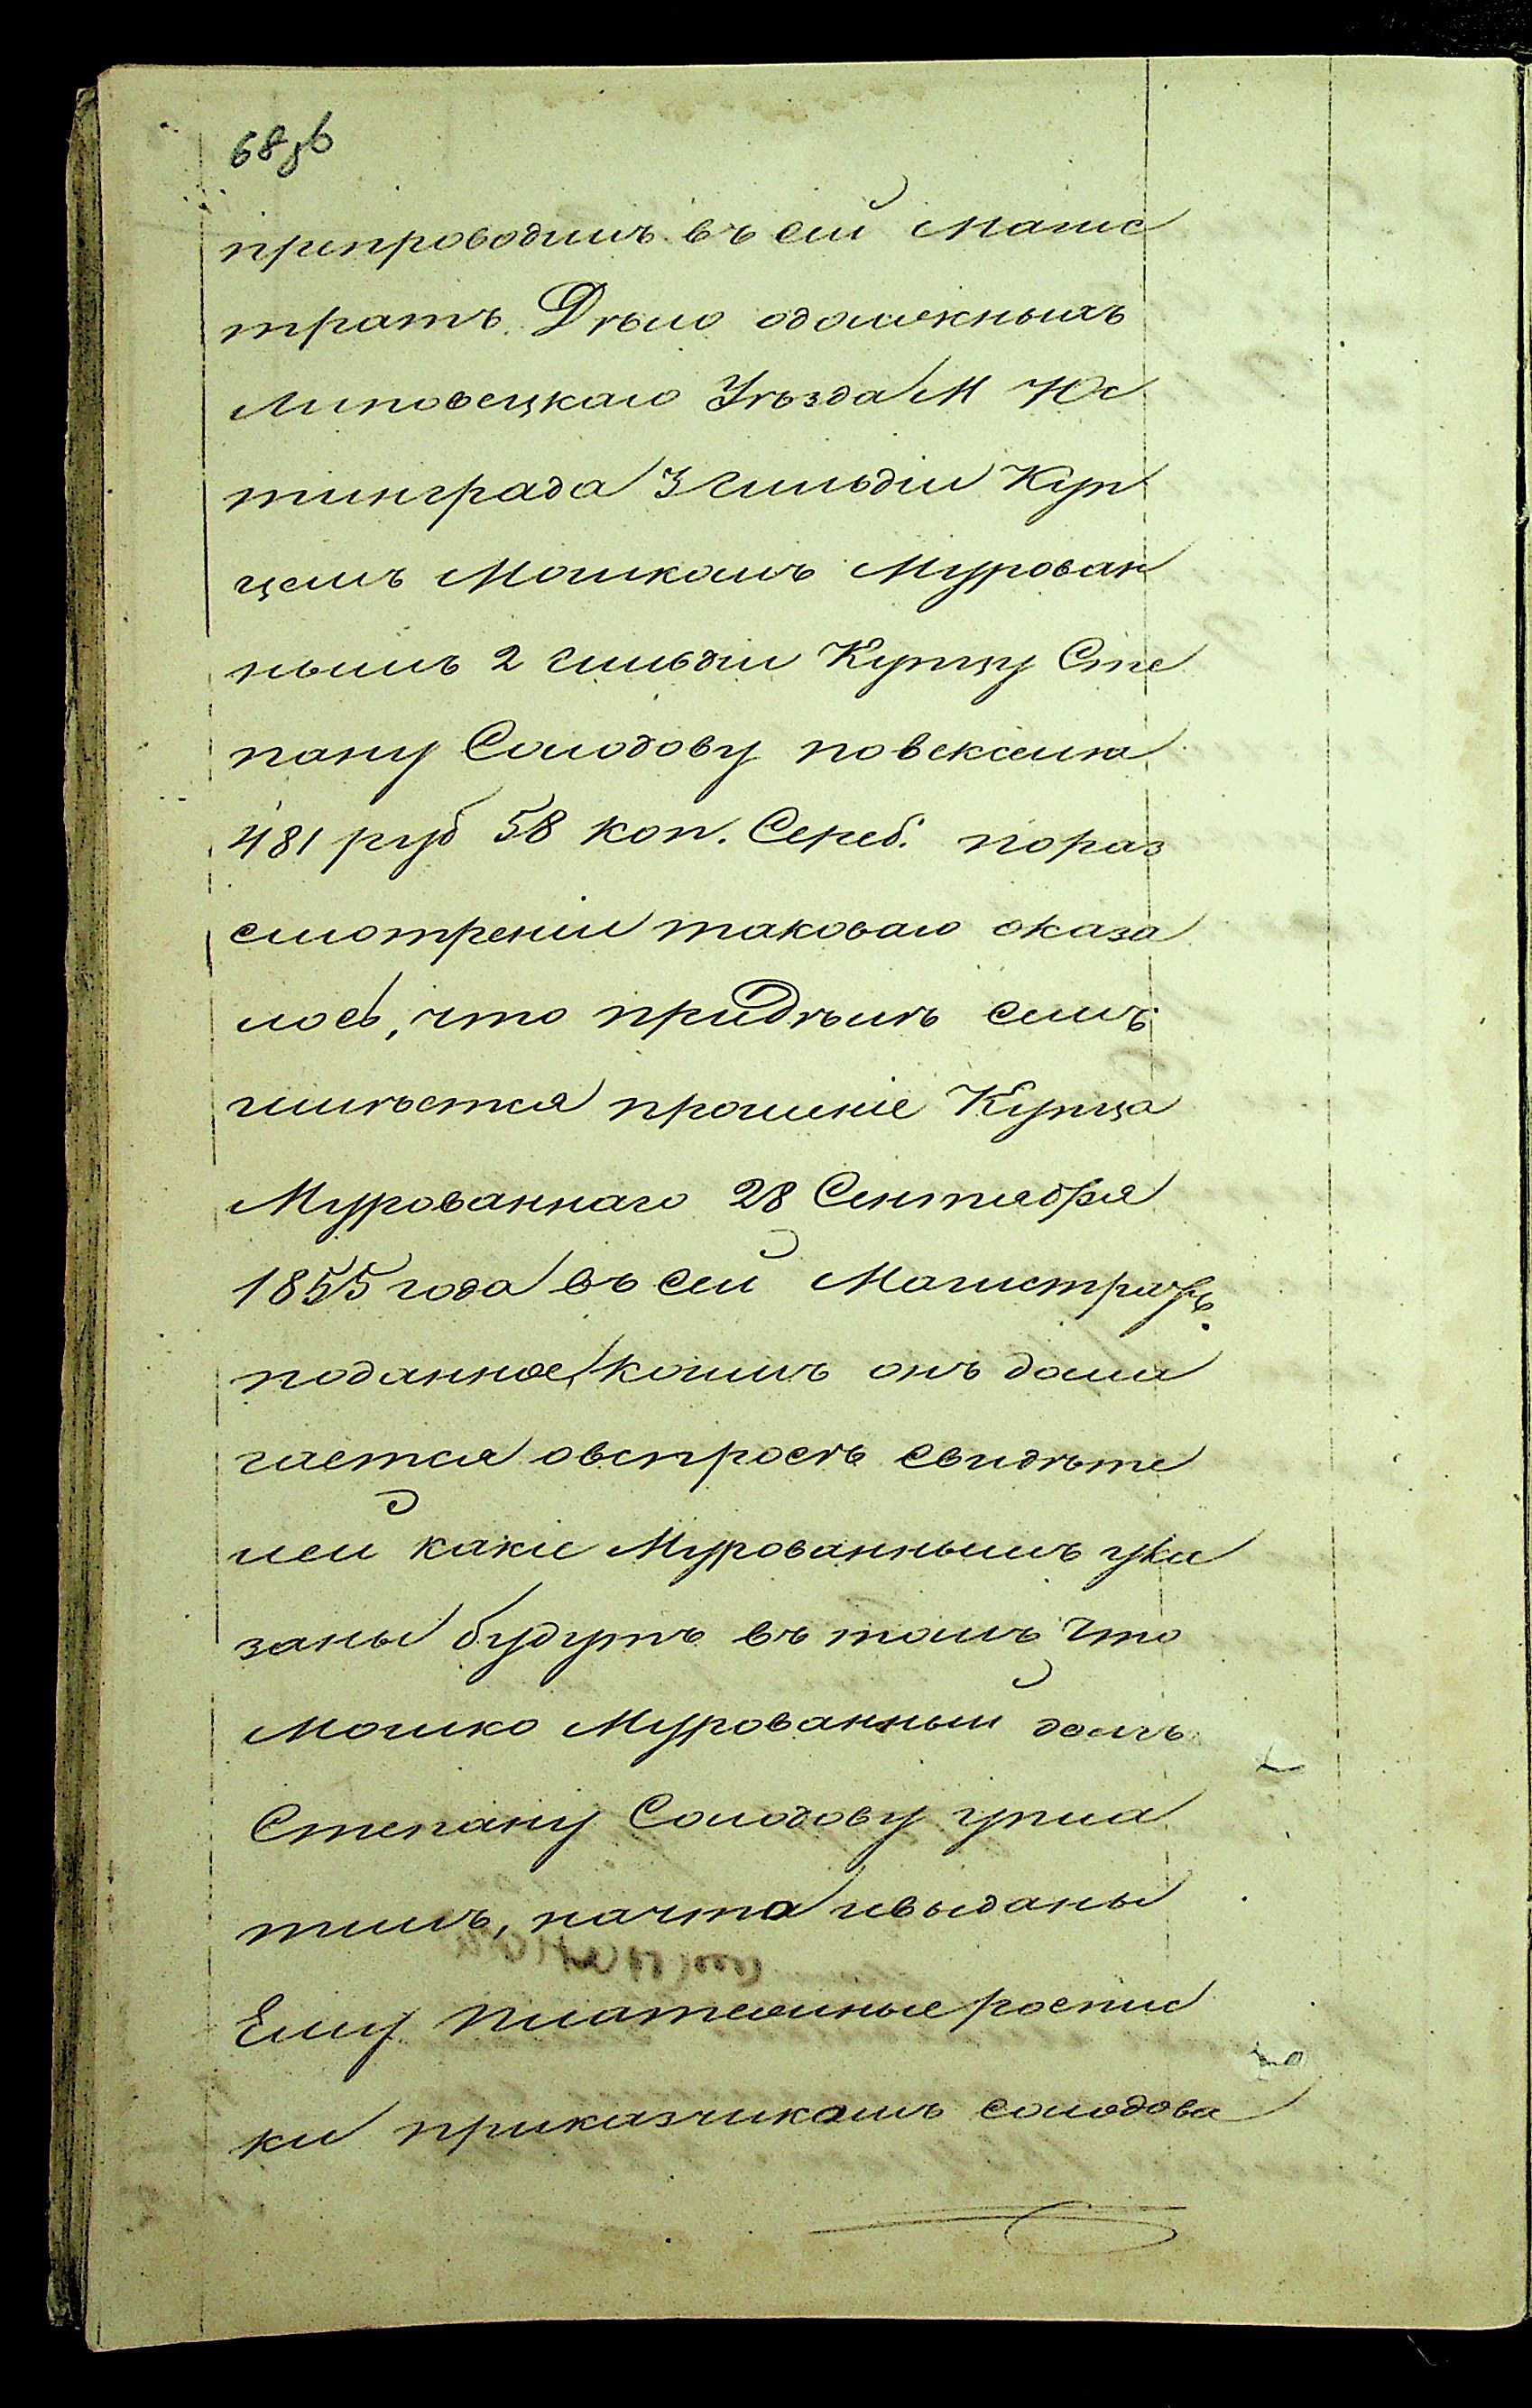 68зв
препроводилъ въ сей Магис
тратъ Дѣло одолженныхъ
Липовецкаго Уѣзда М Юс
тинграда 3 гильдіи Куп
цемъ Мошкомъ Мурован
нымъ 2 гильдіи Купцу Сте
пану Солодову повекселю
481 руб 58 коп. Сереб. пораз
смотреніи таковаго оказа
лось, что придѣлѣ семъ
имѣется прошеніе Купца
Мурованнаго 28 Сентября
1855 года въ сей Магистратъ
поданное, коимъ онъ дома
гается овспросѣ свидѣте
лей какіе Мурованнымъ ука
заны будутъ въ томъ что
Мошко Мурованный долгъ
Степану Солодову упла
тилъ, начто ивыданы
Ему Платежные роспис
ки приказчикомъ Солодова